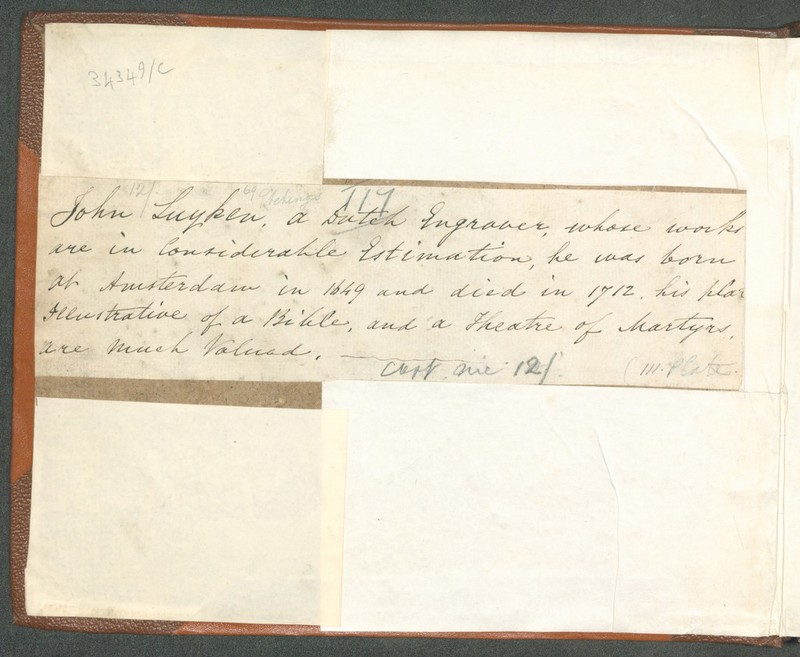 34349/C
12/-
69 Etchings
117
John Luyken, a Dutch Engraver, whose works
are in Considerable Estimation, he was born
at Amsterdam in 1649 and died in 1712. his plat
Illustrative of a Bible, and a Theatre of Martyrs,
are much Valued.
cost me 12/
(111. Plate.